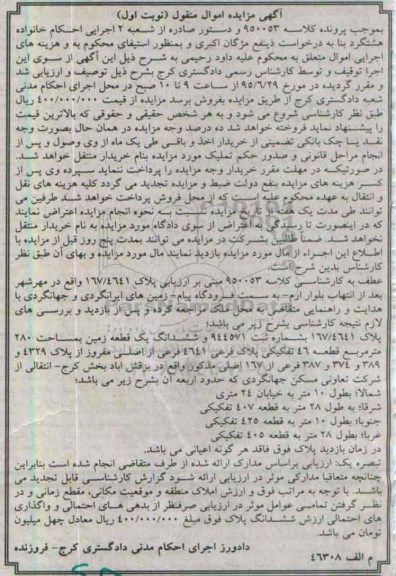 آگهی مزایده اموال منقول (نوبت اول)
بموجب پرونده کلاسه ۹۵۰۰۵۳ و دستور صادره از شعبه ۲ اجرایی احکام خانواده
هشتگرد بنا به درخواست ذینفع مژگان اکبری و بمنظور استیفای محکوم به و هزینه های
اجرایی اموال متعلق به محکوم علیه داود رحیمی به شرح ذیل این آگهی از سوی این
اجرا توقیف و توسط کارشناس رسمی دادگستری کرج بشرح ذیل توصیف و ارزیابی شد
و مقرر گردیده در مورخ ۹۵/۶/۲۹ از ساعت ۹ تا ۱۰ صبح در محل اجرای احکام مدنی
شعبه دادگستری کرج از طریق مزایده بفروش برسد مزایده از قیمت ۴۰۰/۰۰۰/۰۰۰ ریال
طبق نظر کارشناسی شروع می شود و به هر شخص حقیقی و حقوقی که بالاترین قیمت
را پیشنهاد نماید فروخته خواهد شد ده درصد وجه مزایده در همان حال بصورت وجه
نقد یا چک بانکی تضمینی از خریدار اخذ و باقی طی یک ماه از وی وصول و پس از
انجام مراحل قانونی و صدور حکم تملیک مورد مزایده بنام خریدار منتقل خواهد شد.
در صورتیکه در مهلت مقرر خریدار وجه مزایده را پرداخت ننماید سپرده وی پس از
کسر هزینه های مزایده بنفع دولت ضبط و مزایده تجدید می گردد کلیه هزینه های نقل
و انتقال به عهده محکوم علیه است که از محل فروش پرداخت خواهد شد طرفین می
توانند طی مدت یک هفته از تاریخ مزایده نسبت به نحوه انجام مزایده اعتراض نمایند
که در اینصورت تا رسیدگی به اعتراض از سوی دادگاه مورد مزایده به نام خریدار منتقل
نخواهد شد. ضمناً طالبین بشرکت در مزایده می توانند بمدت پنج روز قبل از مزایده با
اطلاع این اجراء از مال مورد مزایده بازدید نمایند مال مورد مزایده و بهای آن طبق نظر
کارشناس بدین شرح است
عطف به کارشناسی کلاسه ۹۵۰۰۵۳ مبنی بر ارزیابی پلاک ۱۶۷/۴۶۴۱ واقع در مهرشهر
بعد از انتهاب بلوار ارم- به سمت فرودگاه پیام- زمین های ایرانگردی و جهانگردی با
هدایت و راهنمایی متقاضی به محل ملک مراجعه گردد و پس از بازدید و بررسی های
لازم نتیجه کارشناسی بشرح زیر می باشد؛
پلاک ۱۶۷/۴۶۴۱ بشماره ثبت ۹۴۴۵۷۱ و ششدانگ یک قطعه زمین بمساحت ۲۸۰
مترمربع قطعه ۴۶ تفکیکی پلاک فرعی ۴۶۴۱ فرعی از اصلی مفروز از پلاک ۴۳۲۹ و
۳۸۹ و ۳۷۴ و ۳۸۷ فرعی از ۱۶۷ اصلی مذکور واقع در بزقش اباد بخش کرج- انتقالی از
شرکت تعاونی مسکن جهانگردی که حدود اربعه آن بشرح زیر می باشد؛
شمالا؛ بطول ۱۰ متر به خیابان ۲۴ متری
شرقا؛ به طول ۲۸ متر به قطعه ۴۰۷ تفکیکی
جنوبا؛ بطول ۱۰ متر به قطعه ۴۲۵ تفکیکی
غربا؛ بطول ۲۸ متر به قطعه ۴۰۵ تفکیکی
در زمان بازدید پلاک فوق فاقد هر گونه اعیانی می باشد.
تبصره یک: ارزیابی براساس مدارک ارائه شده از طرف متقاضی انجام شده است بنابراین
چنانچه متعاقبا مدارکی موثر در ارزیابی ارائه شود گزارش کارشناسی قابل تجدید می
باشد. با توجه به مراتب فوق و ارزش املاک منطقه و موقعیت مکانی، مقطع زمانی و در
نظر گرفتن تمامی عوامل موثر در ارزیابی صرفنظر از بدهی های احتمالی و واگذاری
های احتمالی ارزش ششدانگ پلاک فوق مبلغ ۴۰۰/۰۰۰/۰۰۰ ریال معادل چهل میلیون
تومان می باشد.
دادورز اجرای احکام مدنی دادگستری کرج- فروزنده
م الف ۴۶۳۰۸